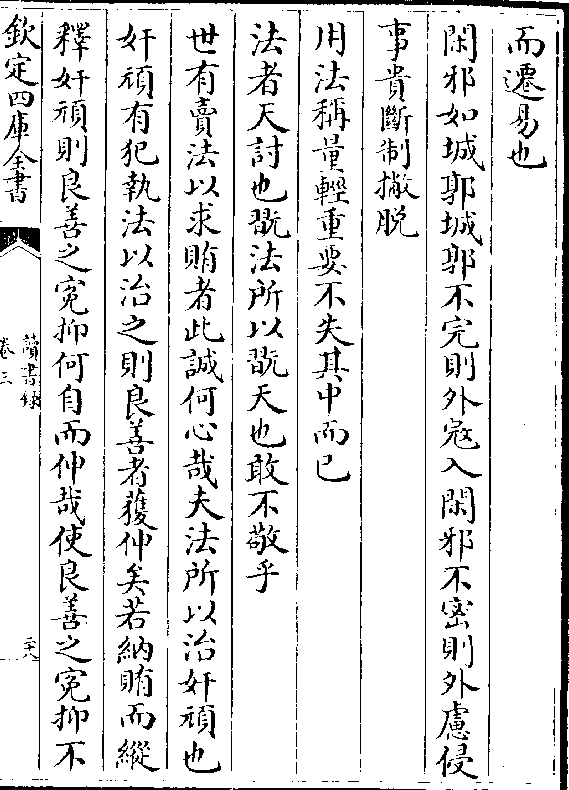 而遷易也
閑邪如城郭城郭不完則外㓂入閑邪不密則外慮侵
事貴斷制撇脱
用法稱量輕重要不失其中而已
法者天討也翫法所以翫天也敢不敬乎
世有賣法以求賄者此誠何心哉夫法所以治奸頑也
奸頑有犯執法以治之則良善者獲伸矣若納賄而縱
釋奸頑則良善之寃抑何自而伸哉使良善之寃抑不
欽定四庫全書
讀書録
卷三
二十八